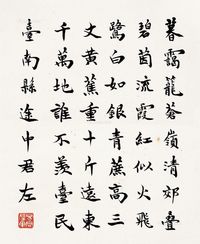 暮靄籠蒼嶺清郊疊
碧茵流霞紅似火飛
鷺白如銀青蔗高三
丈黃蕉重十斤遠東
千萬地誰不羨臺民
臺南縣途中君左